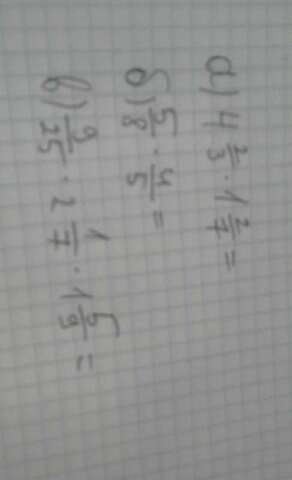 а) 4 2/3 · 1 2/7 =
б) 5/8 · 4/5 =
в) 9/25 · 2 1/7 · 1 5/9 =